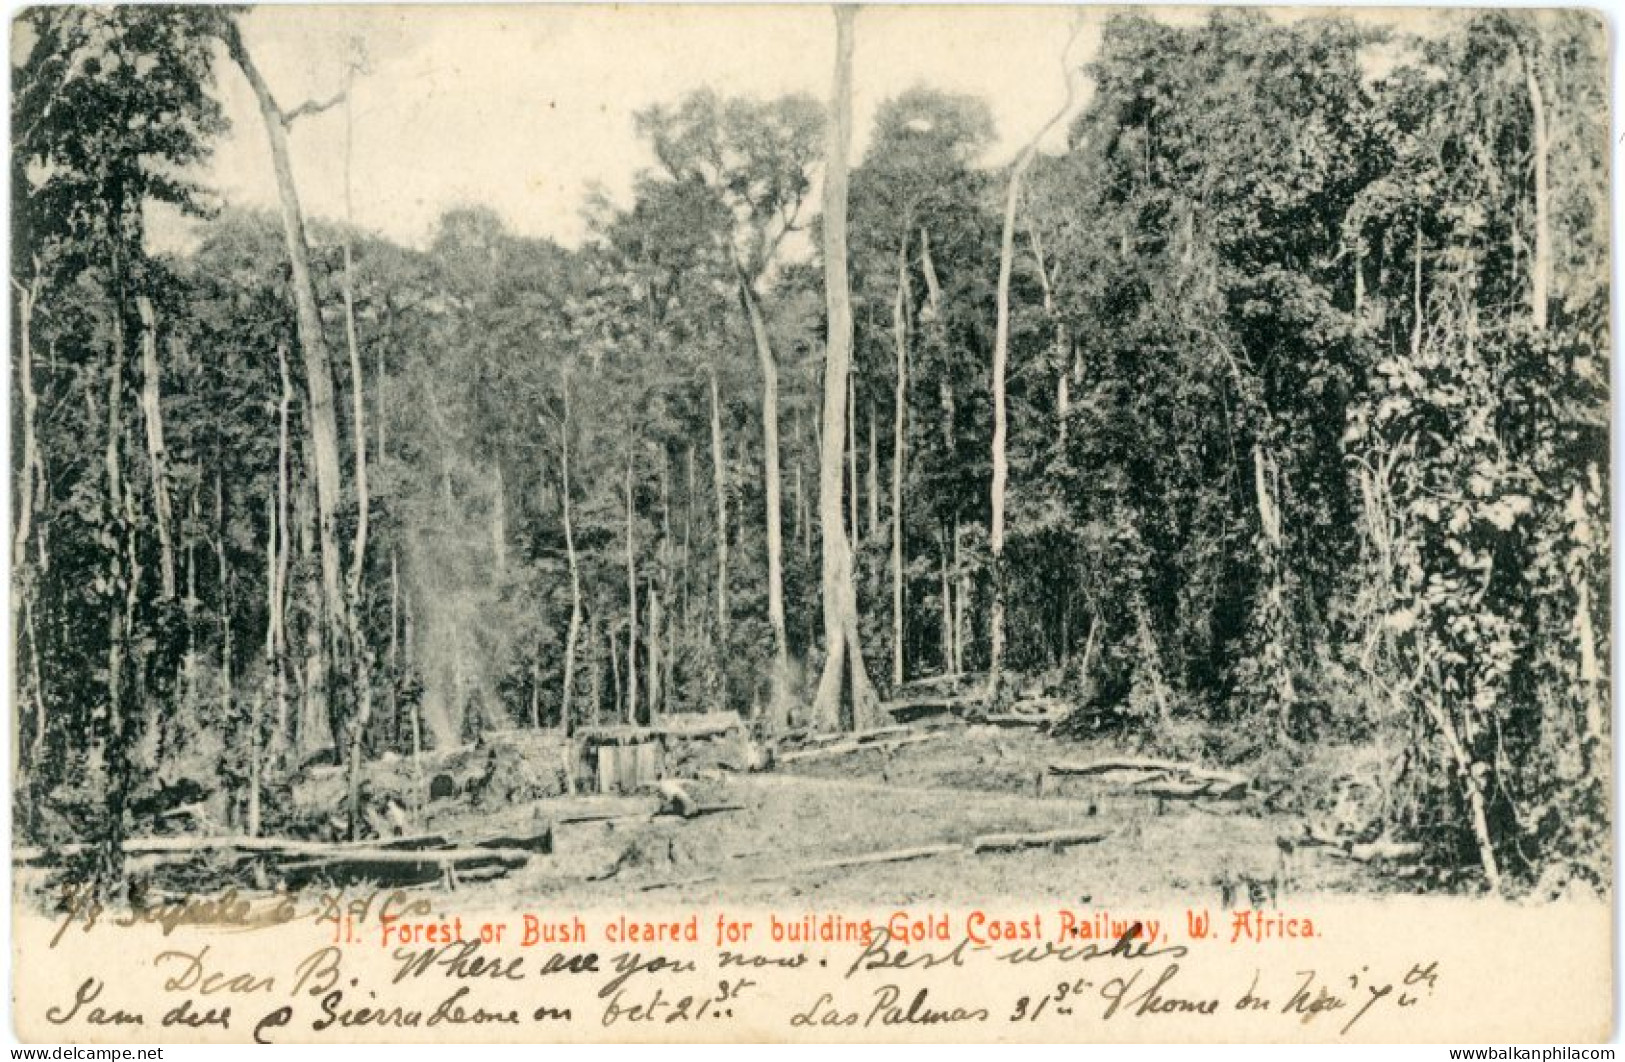 S/S Sapele E. D & Co.
11. Forest or Bush cleared for building Gold Coast Railway, W. Africa.
Dear B. Where are you now. Best wishes
I am due @ Sierra Leone on Oct 21st Las Palmas 31st & home on Nov 7th
delcampe.net
wwwbalkanphilacom